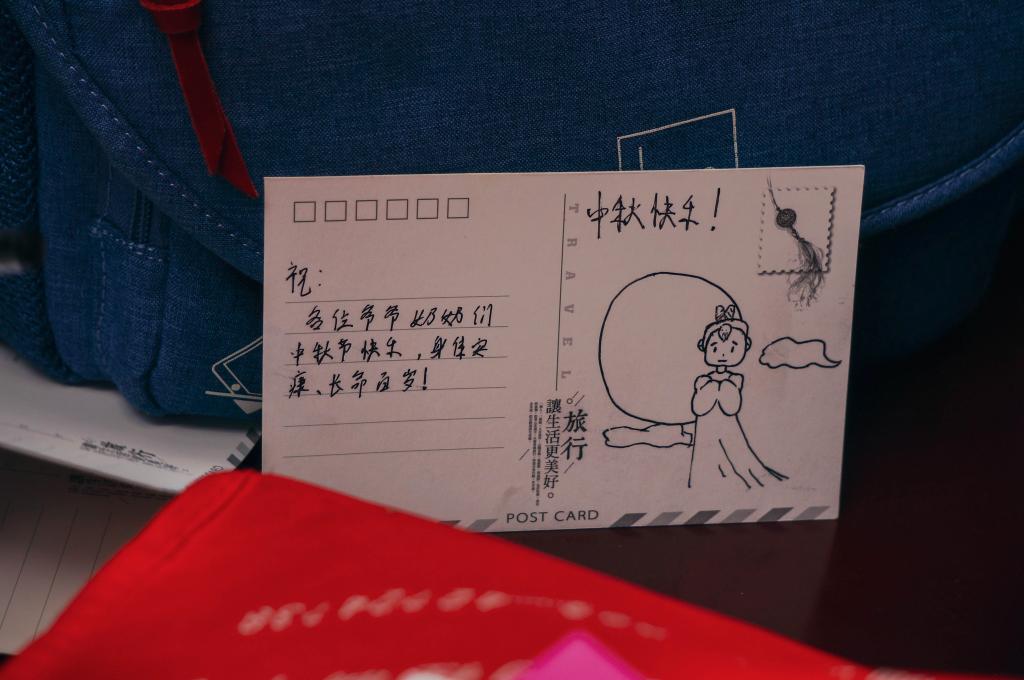 中秋快乐！
祝：
各位爷爷奶奶们
中秋节快乐，身体安
康、长命百岁！
TRAVEL
旅行
讓生活更美好。
POST CARD